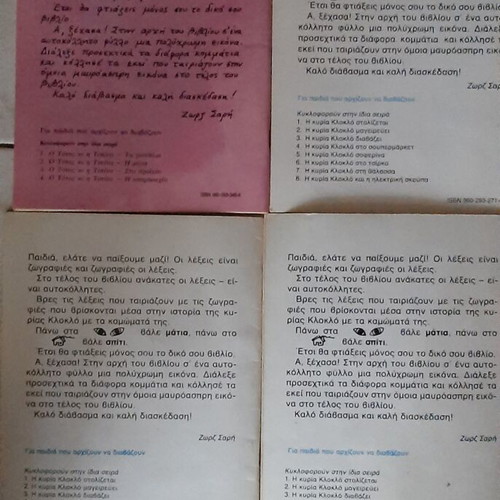 Έτσι θα φτιάξεις μόνος σου το δικό σου
βιβλίο.
Α, ξέχασα! Στην αρχή του βιβλίου σ' ένα
αυτοκόλλητο φύλλο μια πολύχρωμη εικόνα.
Διάλεξε προσεκτικά τα διάφορα κομμάτια
και κόλλησέ τα εκεί που ταιριάζουν στην
όμοια μαυρόασπρη εικόνα στο τέλος του
βιβλίου.
Καλό διάβασμα και καλή διασκέδαση!
Ζωρζ Σαρή
Για παιδιά που αρχίζουν να διαβάζουν
Κυκλοφορούν στην ίδια σειρά
Έτσι θα φτιάξεις μόνος σου το δικό σου βιβλίο.
Α, ξέχασα! Στην αρχή του βιβλίου σ' ένα αυτο-
κόλλητο φύλλο μια πολύχρωμη εικόνα. Διάλεξε
προσεχτικά τα διάφορα κομμάτια και κόλλησέ τα
εκεί που ταιριάζουν στην όμοια μαυρόασπρη εικό-
να στο τέλος του βιβλίου.
Καλό διάβασμα και καλή διασκέδαση!
Ζωρζ Σαρή
Για παιδιά που αρχίζουν να διαβάζουν
Κυκλοφορούν στην ίδια σειρά
1. Η κυρία Κλοκλό στολίζεται
2. Η κυρία Κλοκλό μαγειρεύει
3. Η κυρία Κλοκλό διαβάζει
4. Η κυρία Κλοκλό στο σουπερμάρκετ
5. Η κυρία Κλοκλό σοφερίνα
6. Η κυρία Κλοκλό στο τσίρκο
7. Η κυρία Κλοκλό στη θάλασσα
8. Η κυρία Κλοκλό και η ηλεκτρική σκούπα
ISBN 960-293-277-
Παιδιά, ελάτε να παίξουμε μαζί! Οι λέξεις είναι
ζωγραφιές και ζωγραφιές οι λέξεις.
Στο τέλος του βιβλίου ανάκατες οι λέξεις – εί-
ναι αυτοκόλλητες.
Βρες τις λέξεις που ταιριάζουν με τις ζωγρα-
φιές που βρίσκονται μέσα στην ιστορία της κυ-
ρίας Κλοκλό με τα καμώματά της.
Πάνω στα βάλε μάτια, πάνω στο
βάλε σπίτι.
Έτσι θα φτιάξεις μόνος σου το δικό σου βιβλίο.
Α, ξέχασα! Στην αρχή του βιβλίου σ' ένα αυτο-
κόλλητο φύλλο μια πολύχρωμη εικόνα. Διάλεξε
προσεχτικά τα διάφορα κομμάτια και κόλλησέ τα
εκεί που ταιριάζουν στην όμοια μαυρόασπρη εικό-
να στο τέλος του βιβλίου.
Καλό διάβασμα και καλή διασκέδαση!
Ζωρζ Σαρή
Για παιδιά που αρχίζουν να διαβάζουν
Κυκλοφορούν στην ίδια σειρά
1. Η κυρία Κλοκλό στολίζεται
2. Η κυρία Κλοκλό μαγειρεύει
3. Η κυρία Κλοκλό διαβάζει
Παιδιά, ελάτε να παίξουμε μαζί! Οι λέξεις είναι
ζωγραφιές και ζωγραφιές οι λέξεις.
Στο τέλος του βιβλίου ανάκατες οι λέξεις – εί-
ναι αυτοκόλλητες.
Βρες τις λέξεις που ταιριάζουν με τις ζωγρα-
φιές που βρίσκονται μέσα στην ιστορία της κυ-
ρίας Κλοκλό με τα καμώματά της.
Πάνω στα βάλε μάτια, πάνω στο
βάλε σπίτι.
Έτσι θα φτιάξεις μόνος σου το δικό σου βιβλίο.
Α, ξέχασα! Στην αρχή του βιβλίου σ' ένα αυτο-
κόλλητο φύλλο μια πολύχρωμη εικόνα. Διάλεξε
προσεχτικά τα διάφορα κομμάτια και κόλλησέ τα
εκεί που ταιριάζουν στην όμοια μαυρόασπρη εικό-
να στο τέλος του βιβλίου.
Καλό διάβασμα και καλή διασκέδαση!
Ζωρζ Σαρή
Για παιδιά που αρχίζουν να διαβάζουν
Κυκλοφορούν στην ίδια σειρά
1. Η κυρία Κλοκλό στολίζεται
2. Η κυρία Κλοκλό μαγειρεύει
3. Η κυρία Κλοκλό διαβάζει